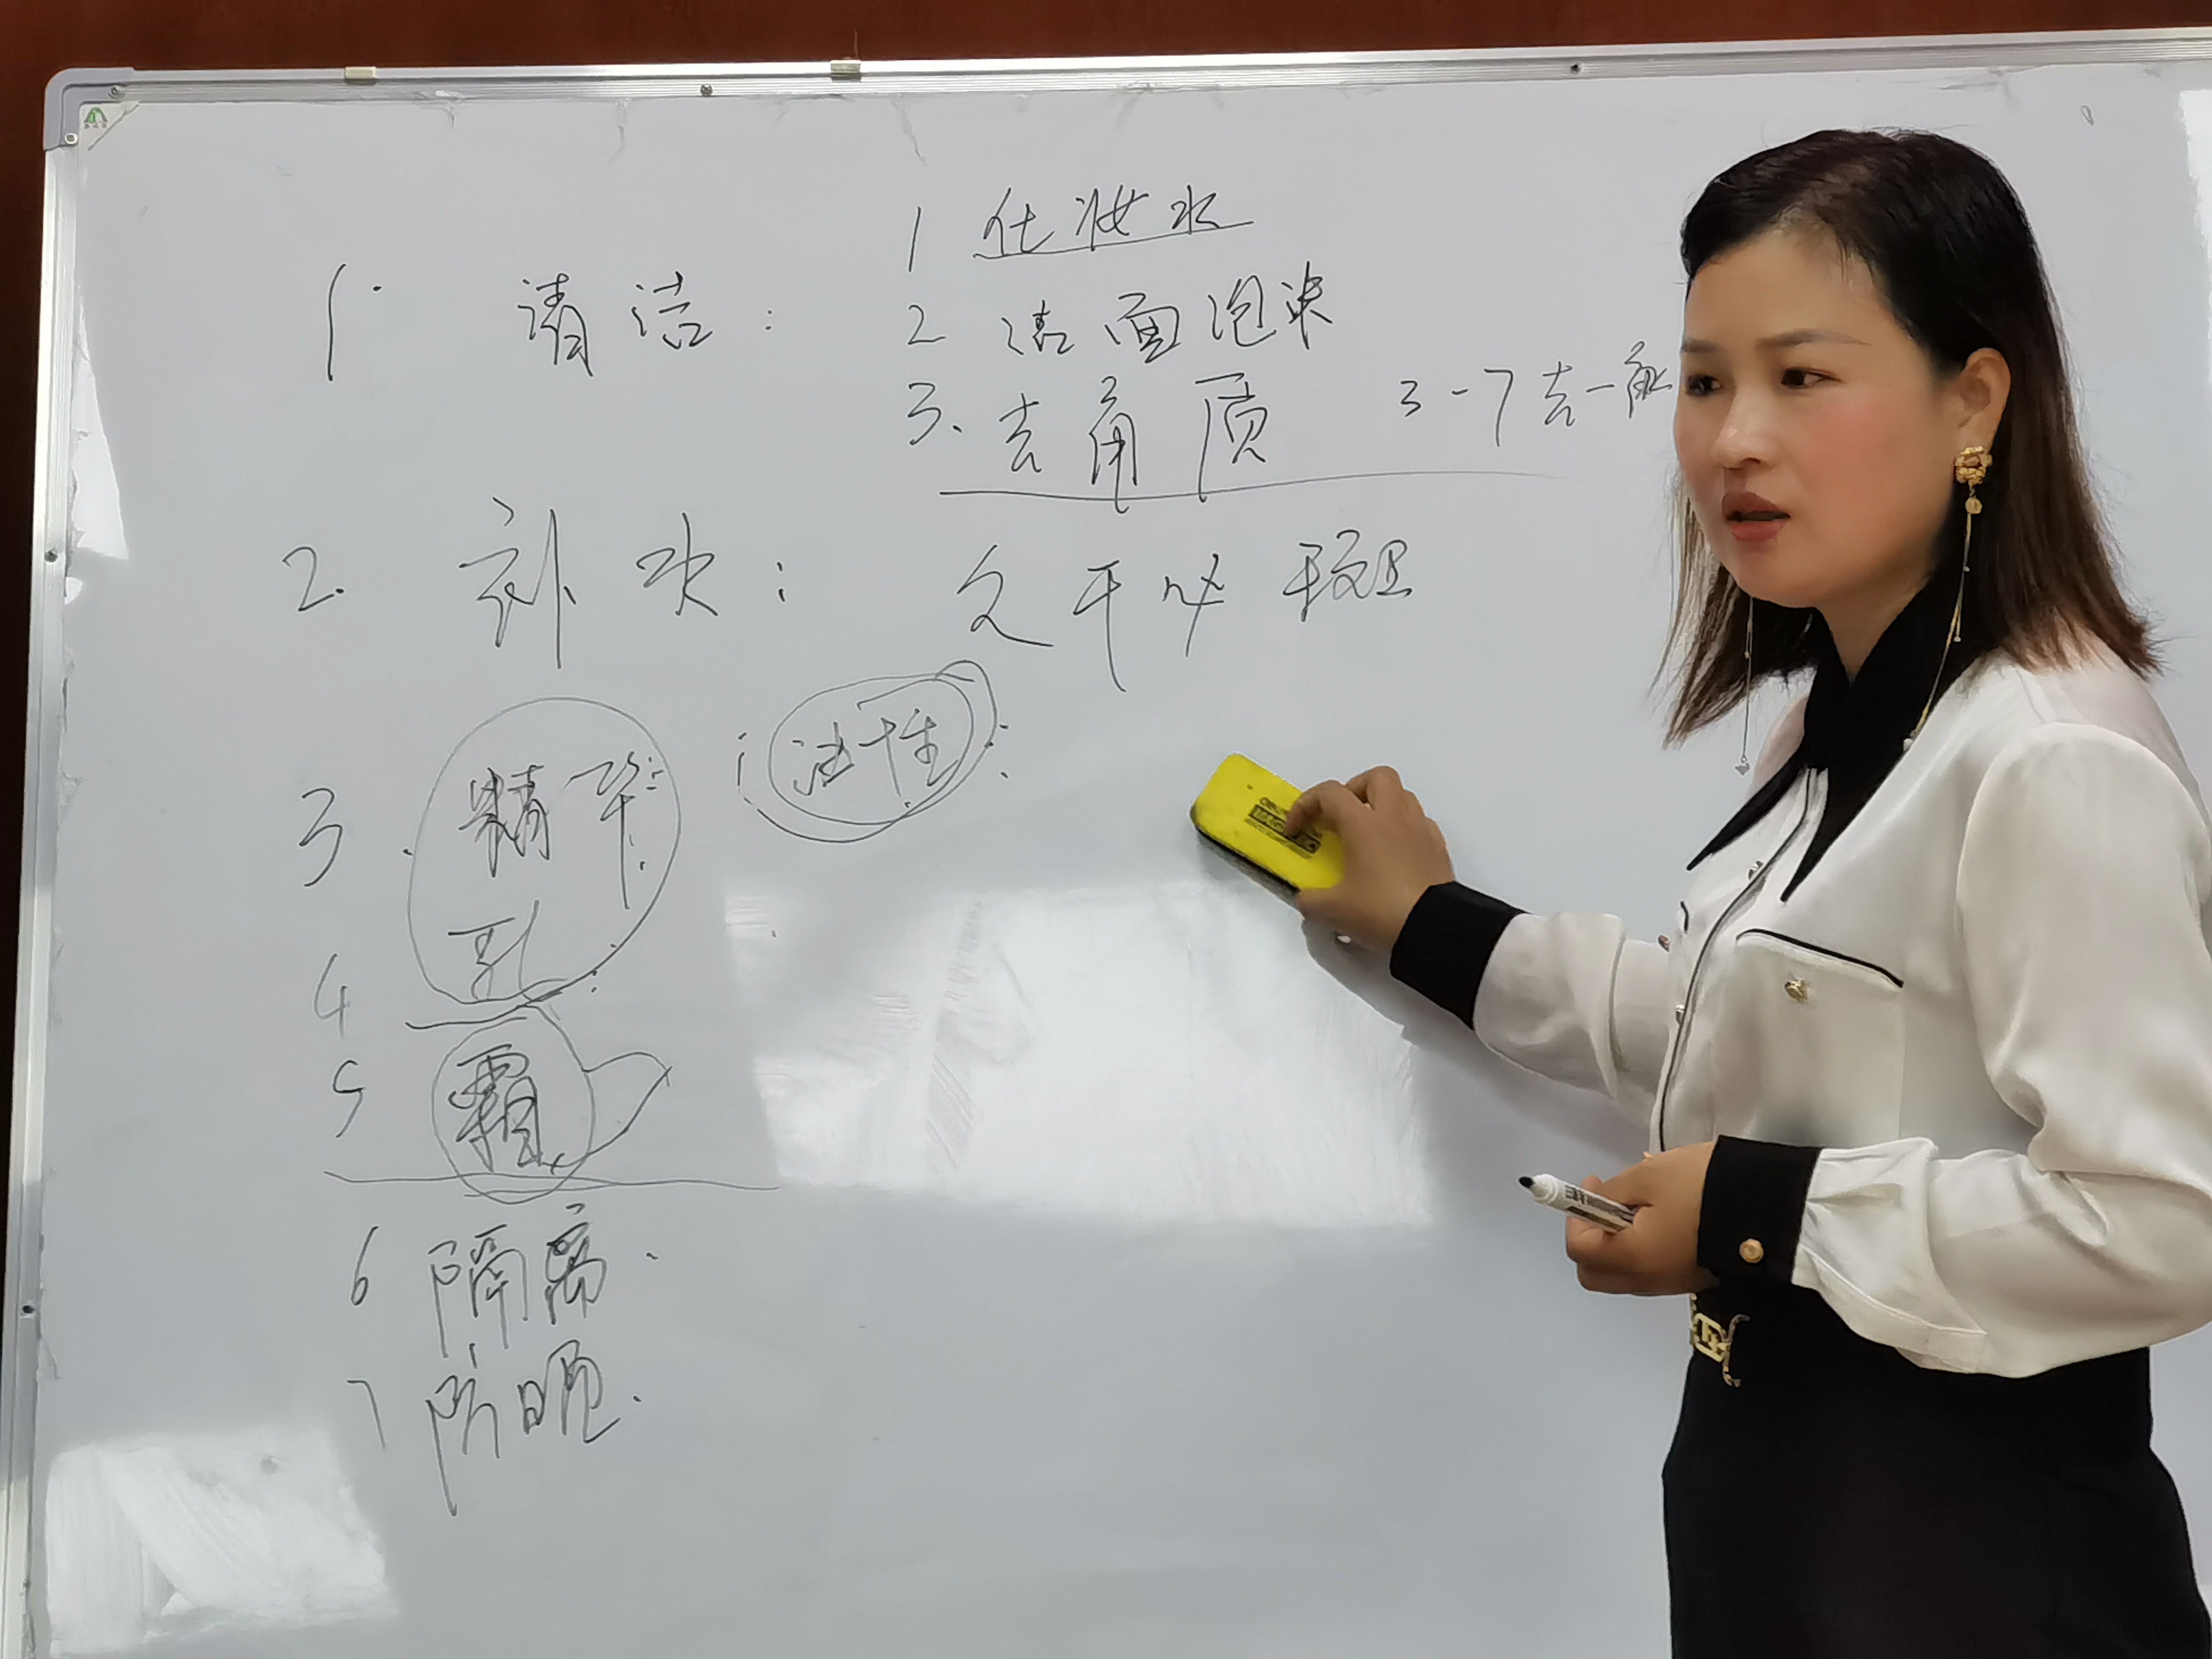 1. 清洁：
1 化妆水
2 洁面泡沫
3. 去角质 3-7去一
2. 补水： 久干必斑
3 精华
油性
4 乳
5 霜
6 隔离.
7 防晒.